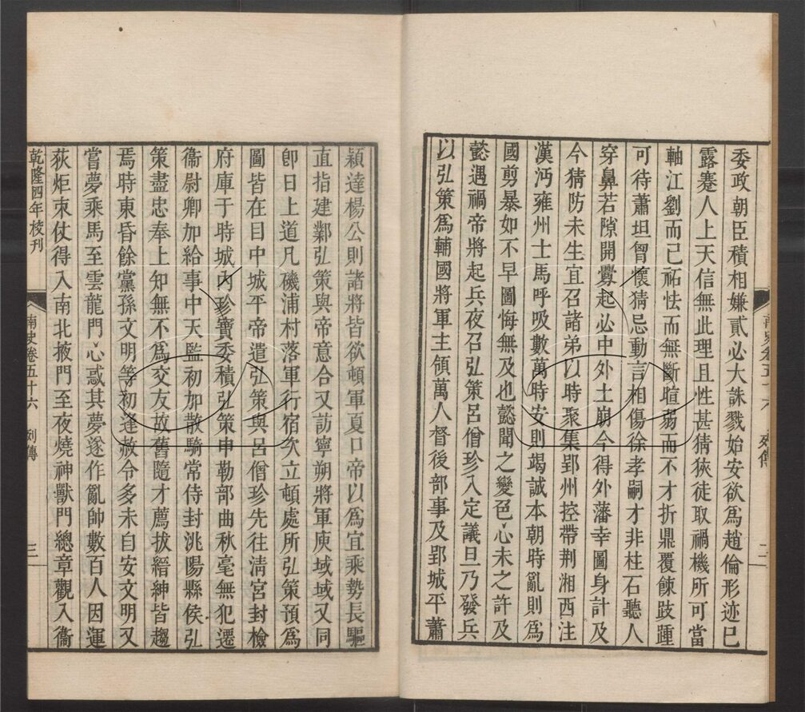 委政朝臣積相嫌貳必大誅戮始安欲爲趙倫形迹已
露蹇人上天信無此理且性甚猜狹徒取禍機所可當
軸江劉而已祏怯而無斷暄弱而不才折鼎覆餗跂踵
可待蕭坦曾懷猜忌動言相傷徐孝嗣才非柱石聽人
穿鼻若隙開釁起必中外土崩今得外藩幸圖身計及
今猜防未生宜召諸弟以時聚集郢州控帶荆湘西注
漢沔雍州士馬呼吸數萬時安則竭誠本朝時亂則爲
國剪暴如不早圖悔無及也懿聞之變色心未之許及
懿遇禍帝將起兵夜召弘策呂僧珍入定議旦乃發兵
以弘策爲輔國將軍主領萬人督後部事及郢城平蕭
南史卷五十六 列傳 二
穎達楊公則諸將皆欲頓軍夏口帝以爲宜乘勢長驅
直指建鄴弘策與帝意合又訪寧朔將軍庾域域又同
卽日上道凡磯浦村落軍行宿次立頓處所弘策預爲
圖皆在目中城平帝遣弘策與呂僧珍先往清宮封檢
府庫于時城內珍寶委積弘策申勒部曲秋毫無犯遷
衞尉卿加給事中天監初加散騎常侍封洮陽縣侯弘
策盡忠奉上知無不爲交友故舊隨才薦拔縉紳皆趨
焉時東昏餘黨孫文明等初逢赦令多未自安文明又
嘗夢乘馬至雲龍門心惑其夢遂作亂帥數百人因運
荻炬束仗得入南北掖門至夜燒神獸門總章觀入衞
乾隆四年校刊
南史卷五十六 列傳 三